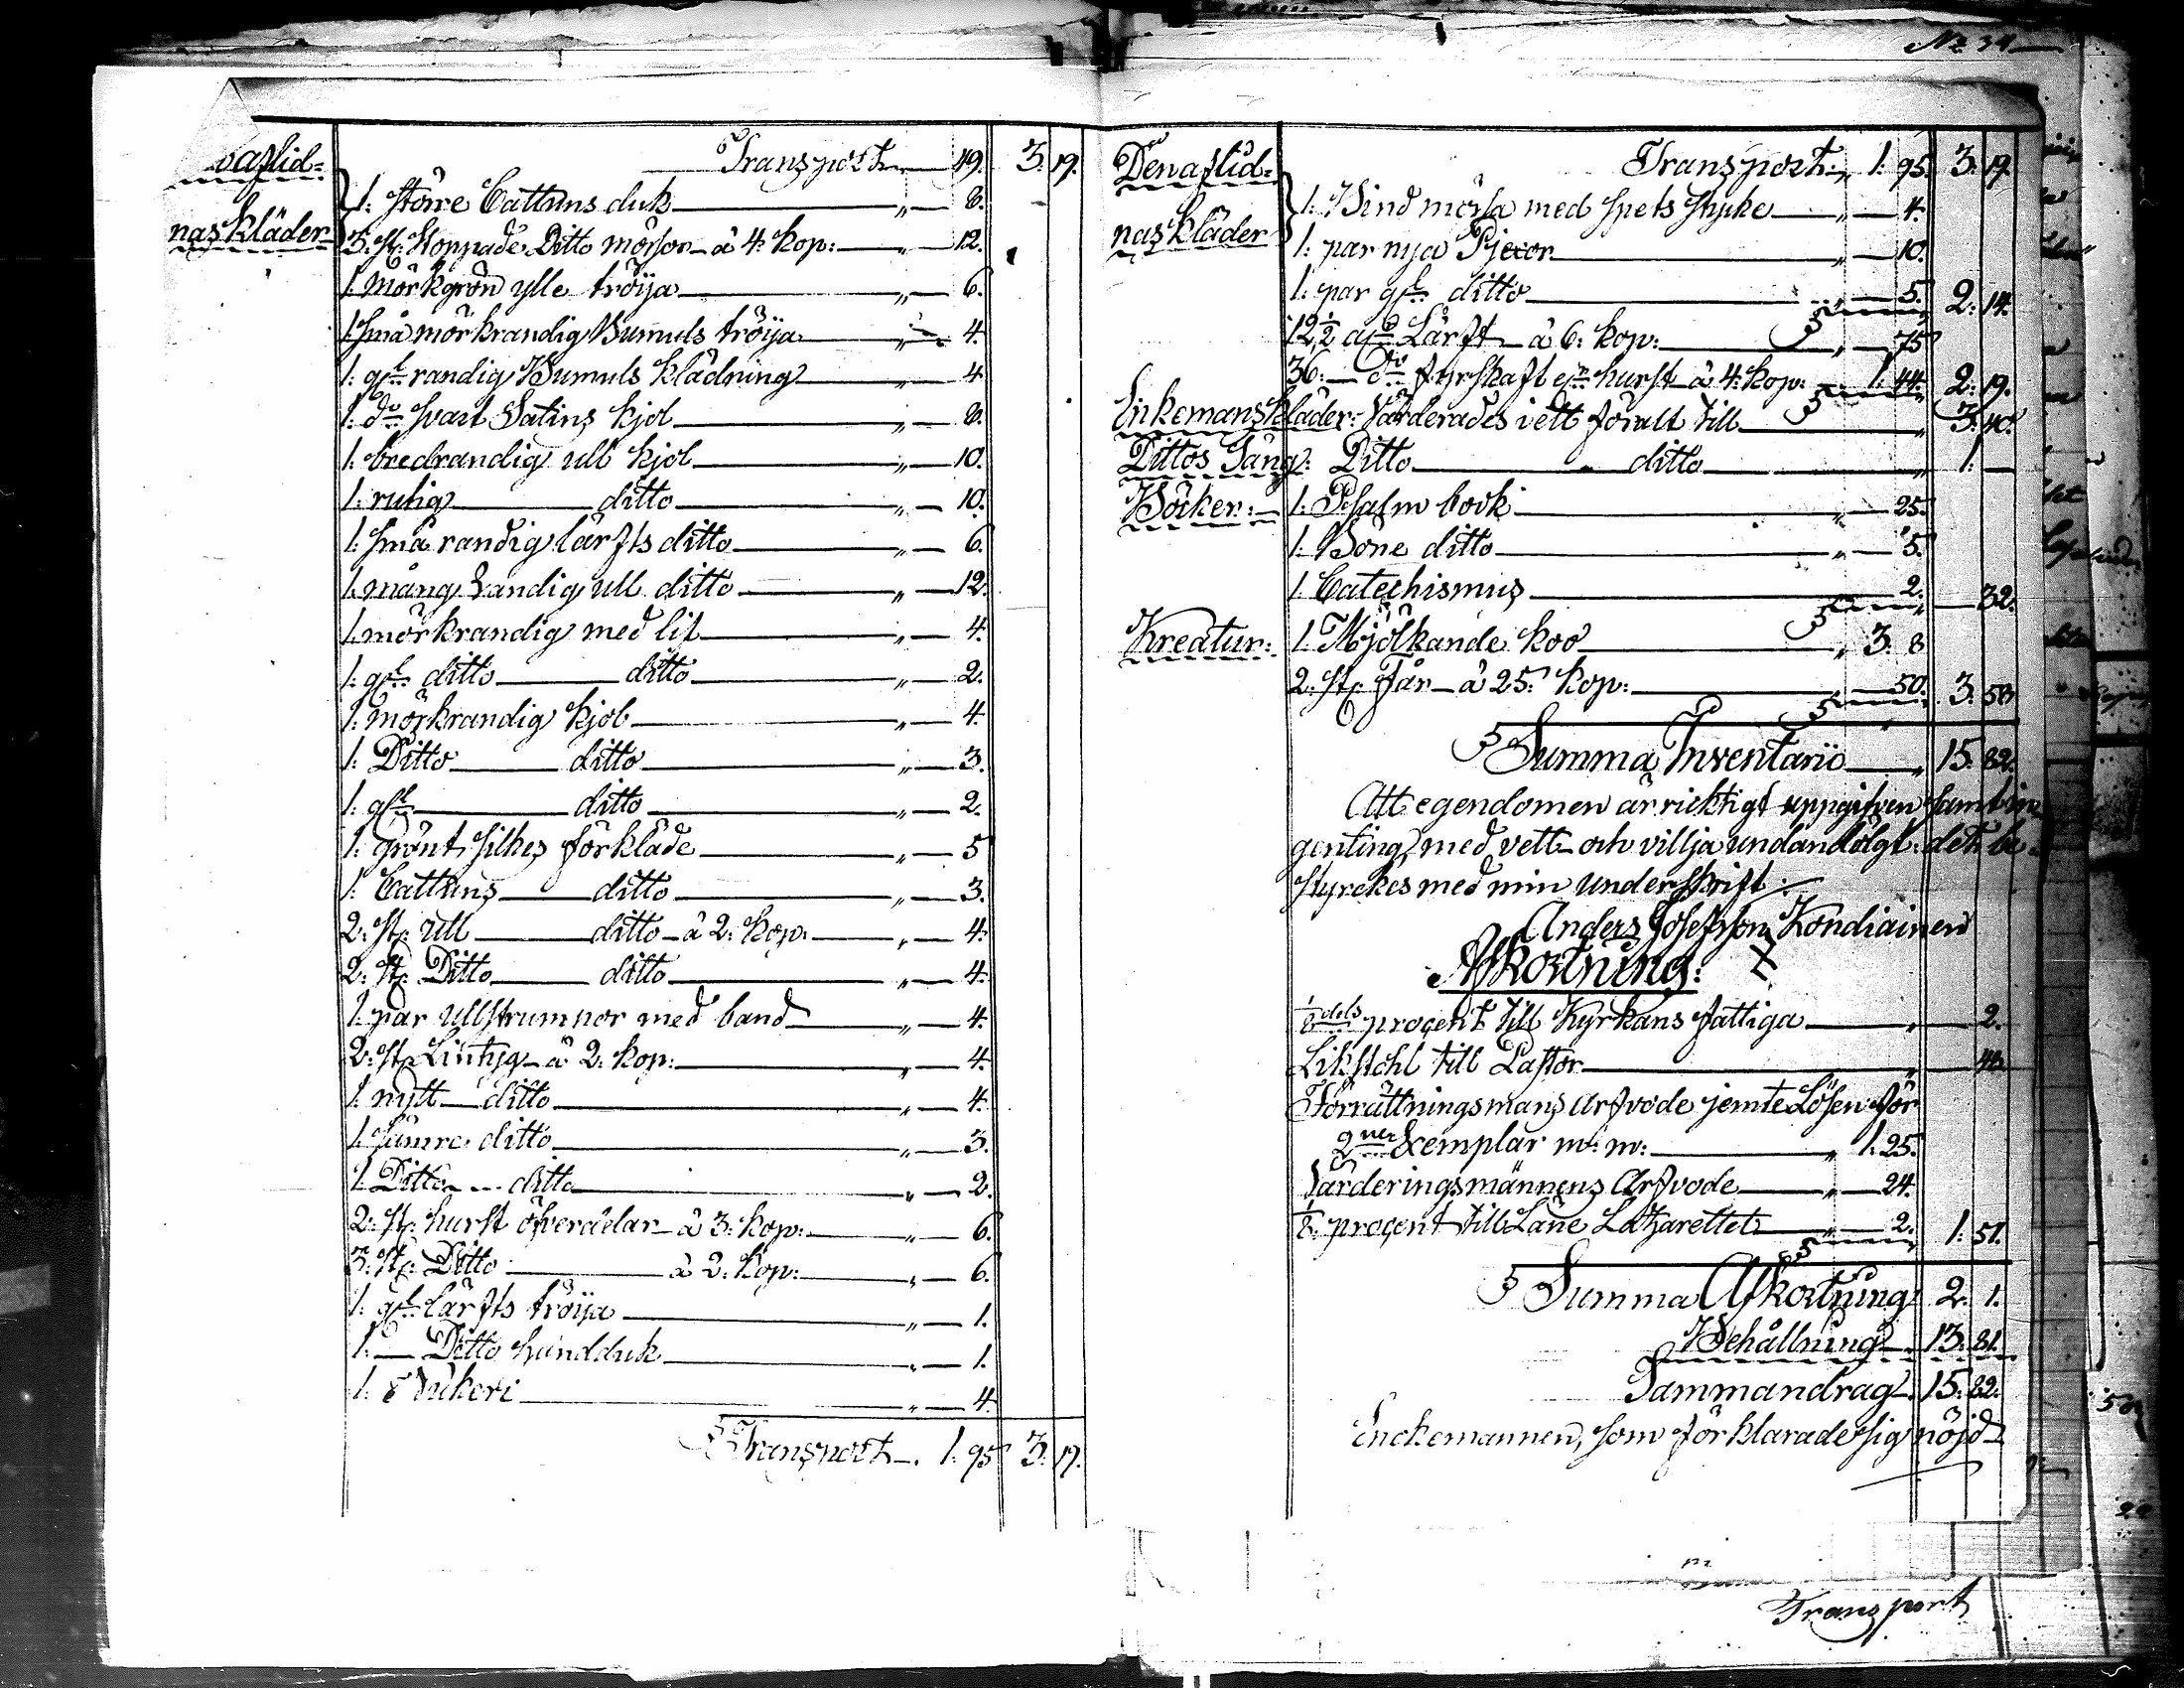 No 34
Transport 49. 3. 19.
aflid=
nas kläder
1. större Cattuns duk " — 8.
3. st. Stoppade Ditto mössor — à 4. kop: " — 12.
1. Mörkgrön ylle tröija " — 6.
1. små mörkrandig Bumuls tröija " — 4.
1. gl. randig Bumuls klädning " — 4
1. do svart Satins kjol " — 8.
1. bredrandig ull kjol " — 10.
1. rutig ditto " — 10.
1. små randig lärfts ditto " — 6.
1. mång randig ull ditto " — 12.
1. mörkrandig med lif " — 4.
1. gl. ditto ditto " — 2.
1. mörkrandig kjol " — 4
1. Ditto ditto " — 3.
1. gl. ditto " — 2.
1. grönt silkes förkläde " — 5
1. Cattuns ditto " — 3.
2. st. ull ditto — à 2. kop: " — 4.
2. st. Ditto ditto " — 4.
1. par ullstrumpor med band " — 4.
2. st. Lintyg — à 2. kop: " — 4.
1. nytt ditto " — 4.
1. sämre ditto " — 3.
1. Ditto ditto " — 2.
2. st. hurst öfverdelar — à 3. kop: " — 6.
3. st. Ditto à 2. kop: " — 6.
1. gl. lärfts tröija " — 1.
1. — Ditto handduk " — 1.
1. " — 4.
Transport . 1. 95 3. 19.
Den aflid=
nas kläder
Transport " 1. 95. 3. 19.
1. Bindmössa med spets stycke " — 4.
1. par nya Pjexor " — 10.
1. par gl. ditto " — 5. 2. 14.
12½ aln Lärft — à 6. kop: " — 75
36. — do fyrskaft hurst — à 4. kop: " 1. 44. 2. 19.
Enkemans kläder: Värderades i ett för allt till " 3. 40.
Dittos Säng: Ditto ditto " 1. —
Böcker: 1. Psalm book " — 25.
1. Böne ditto " — 5.
1. Catechismus 2. — 32.
Kreatur: 1. Mjölkande koo " 3. 8
2. st. Får — à 25. kop: " — 50. 3. 58
Summa Inventario " 15. 82.
Att egendomen är richtigt uppgifven samt in=
genting med vett och villja undandölgt: det be=
styrckes med min underskrift.
Anders Josefsson Kondiainen
Afkortning:
⅛dels procent till Kyrkans fattiga " 2.
Likstohl till Pastor " 48
Förrättningsmans arfvode jemte Lösen för
2ner Exemplar m. m: " 1. 25.
Värderingsmännens Arfvode " — 24.
⅛ procent till Läne Lazarettet " 2. 1. 51.
Summa Afkortning 2. 1.
Behållning 13. 81.
Sammandrag 15. 82.
Enckemannen, som förklarade sig nöjd
Transport